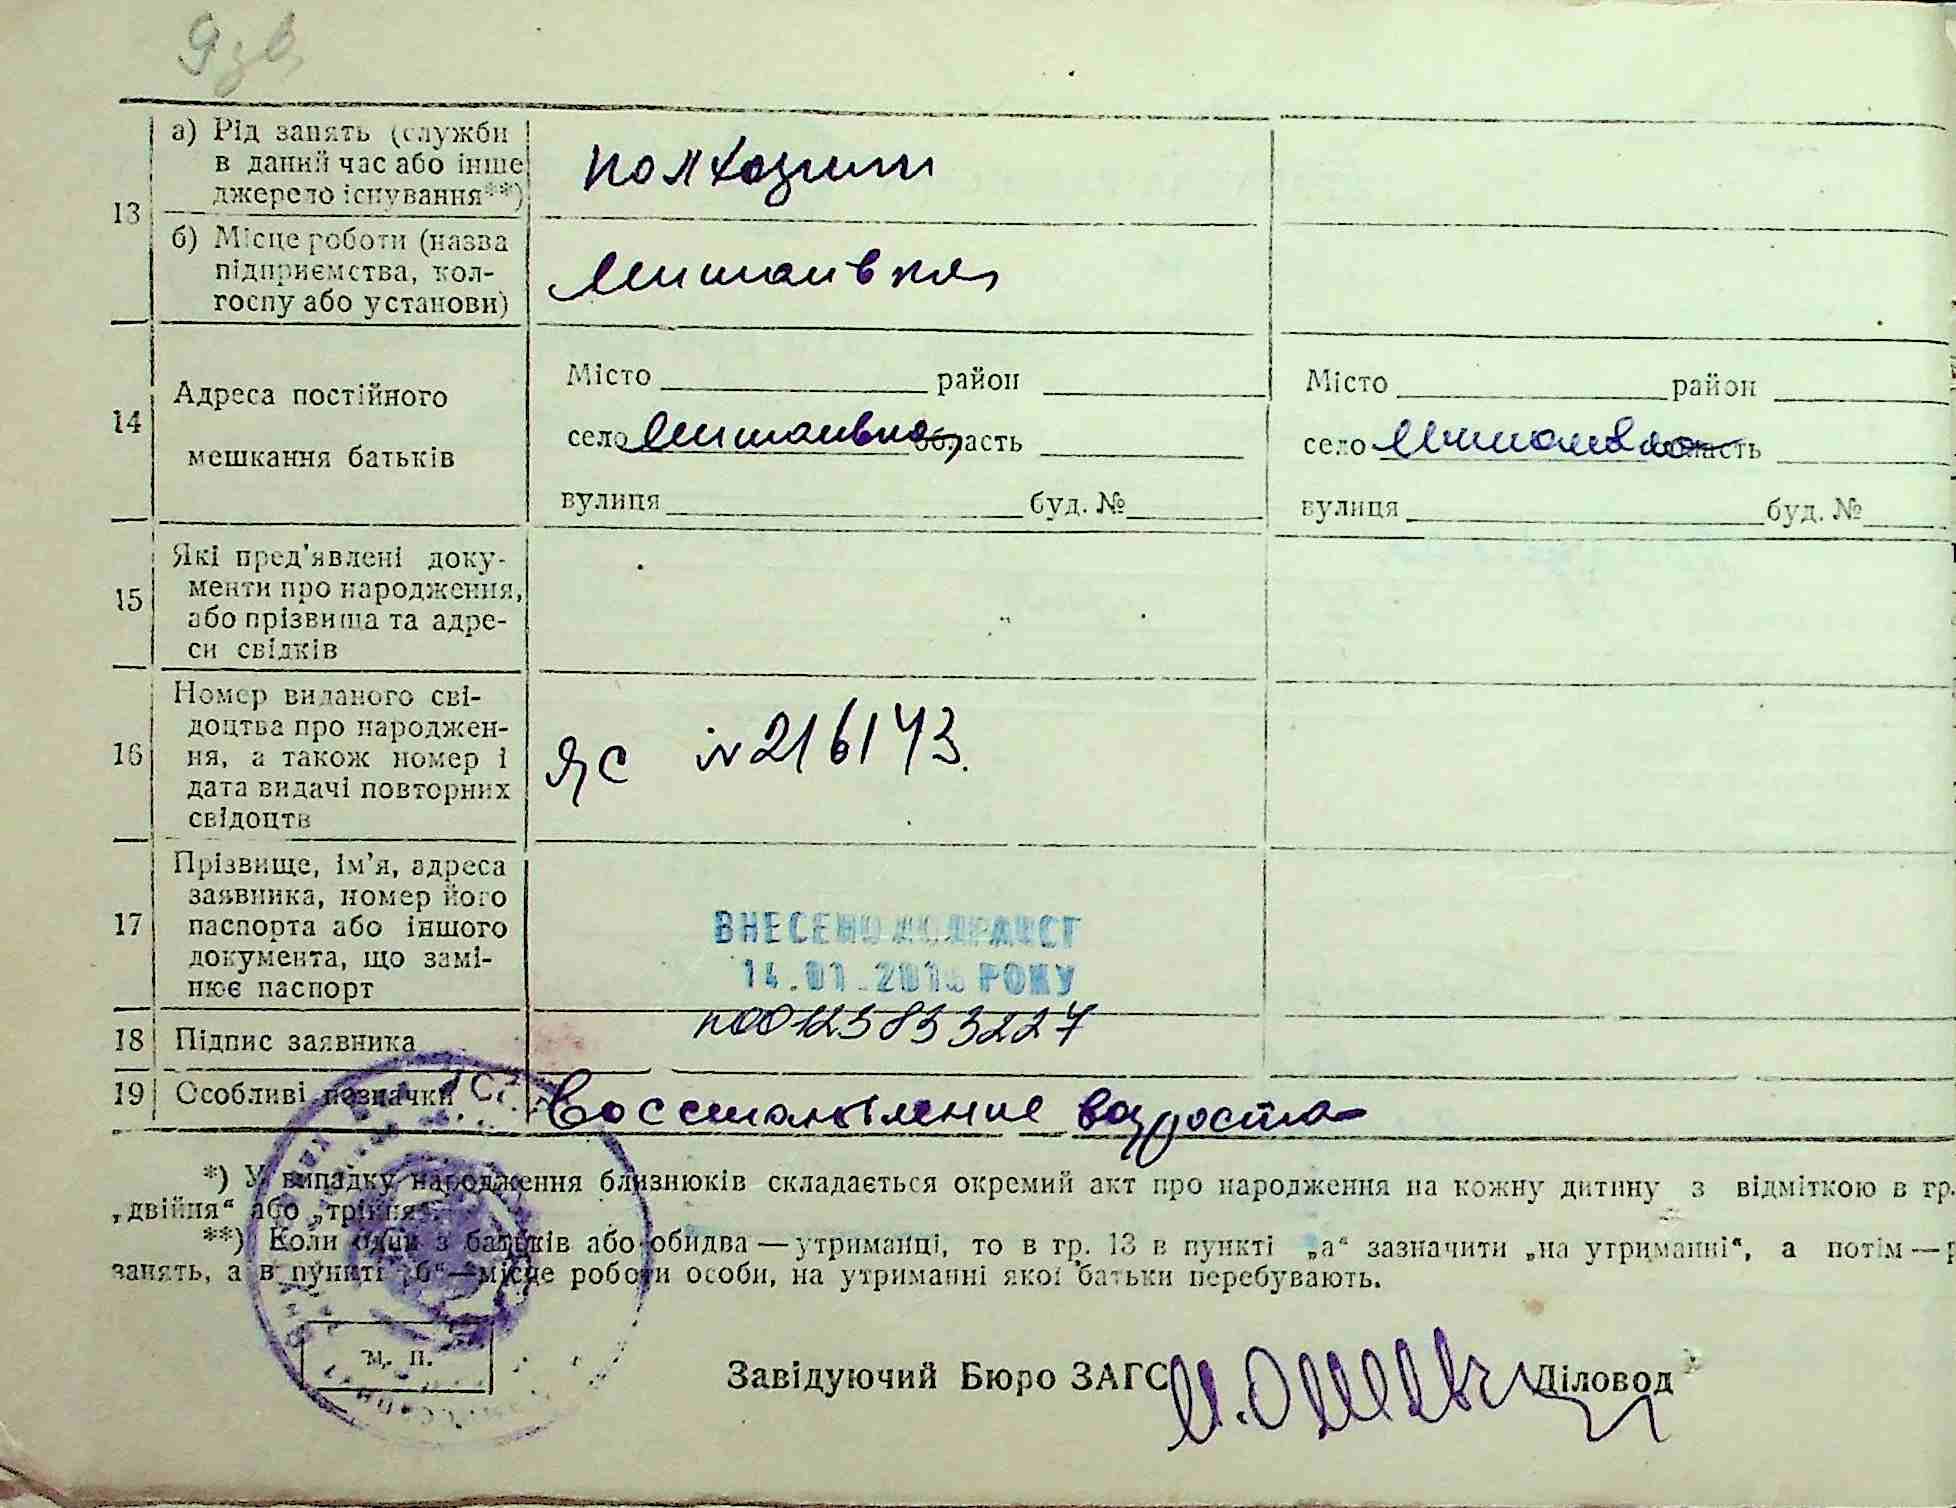 13
а) Рід занять (служби
в даний час або інше
джерело існування**)
колхозник
б) Місце роботи (назва
підприємства, кол-
госпу або установи)
14
Адреса постійного
мешкання батьків
Місто район
село область
вулиця буд. №
Місто район
село область
вулиця буд. №
15
Які пред'явлені доку-
менти про народження,
або прізвища та адре-
си свідків
16
Номер виданого сві-
доцтва про народжен-
ня, а також номер і
дата видачі повторних
свідоцтв
ЯС №216143.
17
Прізвище, ім'я, адреса
заявника, номер його
паспорта або іншого
документа, що замі-
нює паспорт
ВНЕСЕНО ДО ДРАЦСГ
14.01. РОКУ
18 Підпис заявника
00123833227
19 Особливі позначки
Восстановление возроста
*) У випадку народження близнюків складається окремий акт про народження на кожну дитину з відміткою в гр.
„двійня“ або „трійня“.
**) Коли один з батьків або обидва — утриманці, то в гр. 13 в пункті „а“ зазначити „на утриманні“, а потім —
занять, а в пункті „б“ — місце роботи особи, на утриманні якої батьки перебувають.
М. П.
Завідуючий Бюро ЗАГС Діловод